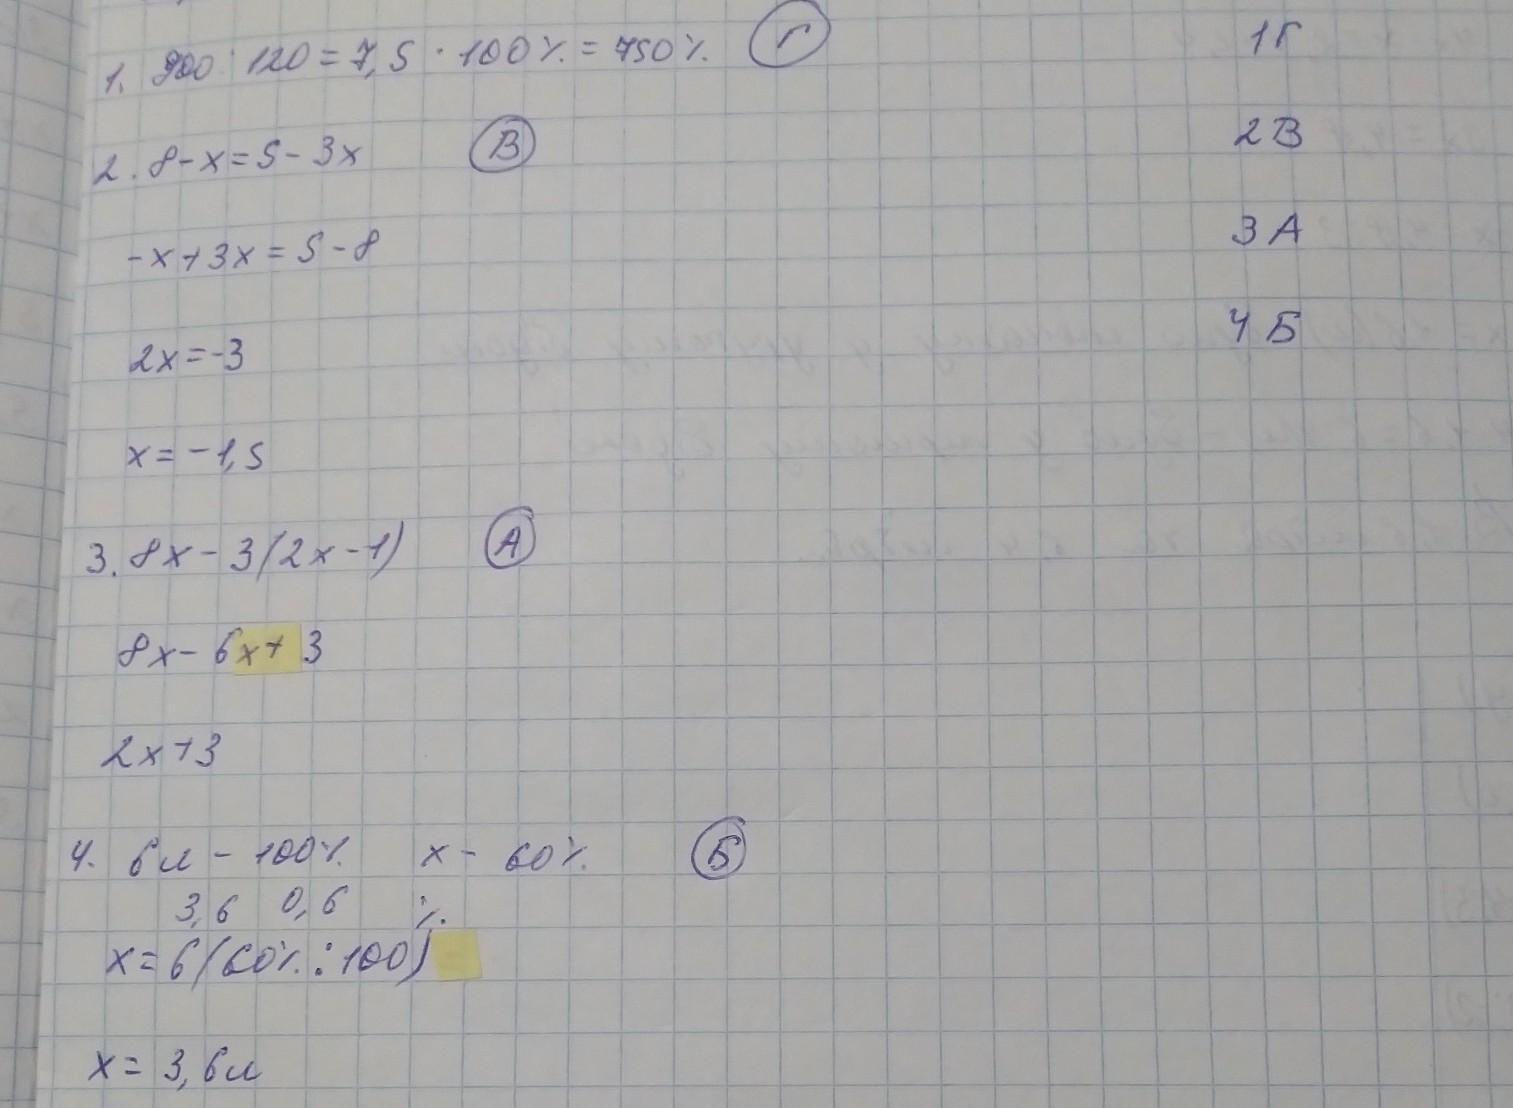 1. 900 : 120 = 7,5 · 100% = 750% Г
2. 8-x=5-3x В
-x+3x=5-8
2x=-3
x=-1,5
3. 8x-3(2x-1) А
8x-6x+3
2x+3
4. 6л - 100% x - 60% Б
3,6 0,6 %
x=6(60%:100)
x=3,6л
1Г
2В
3А
4Б